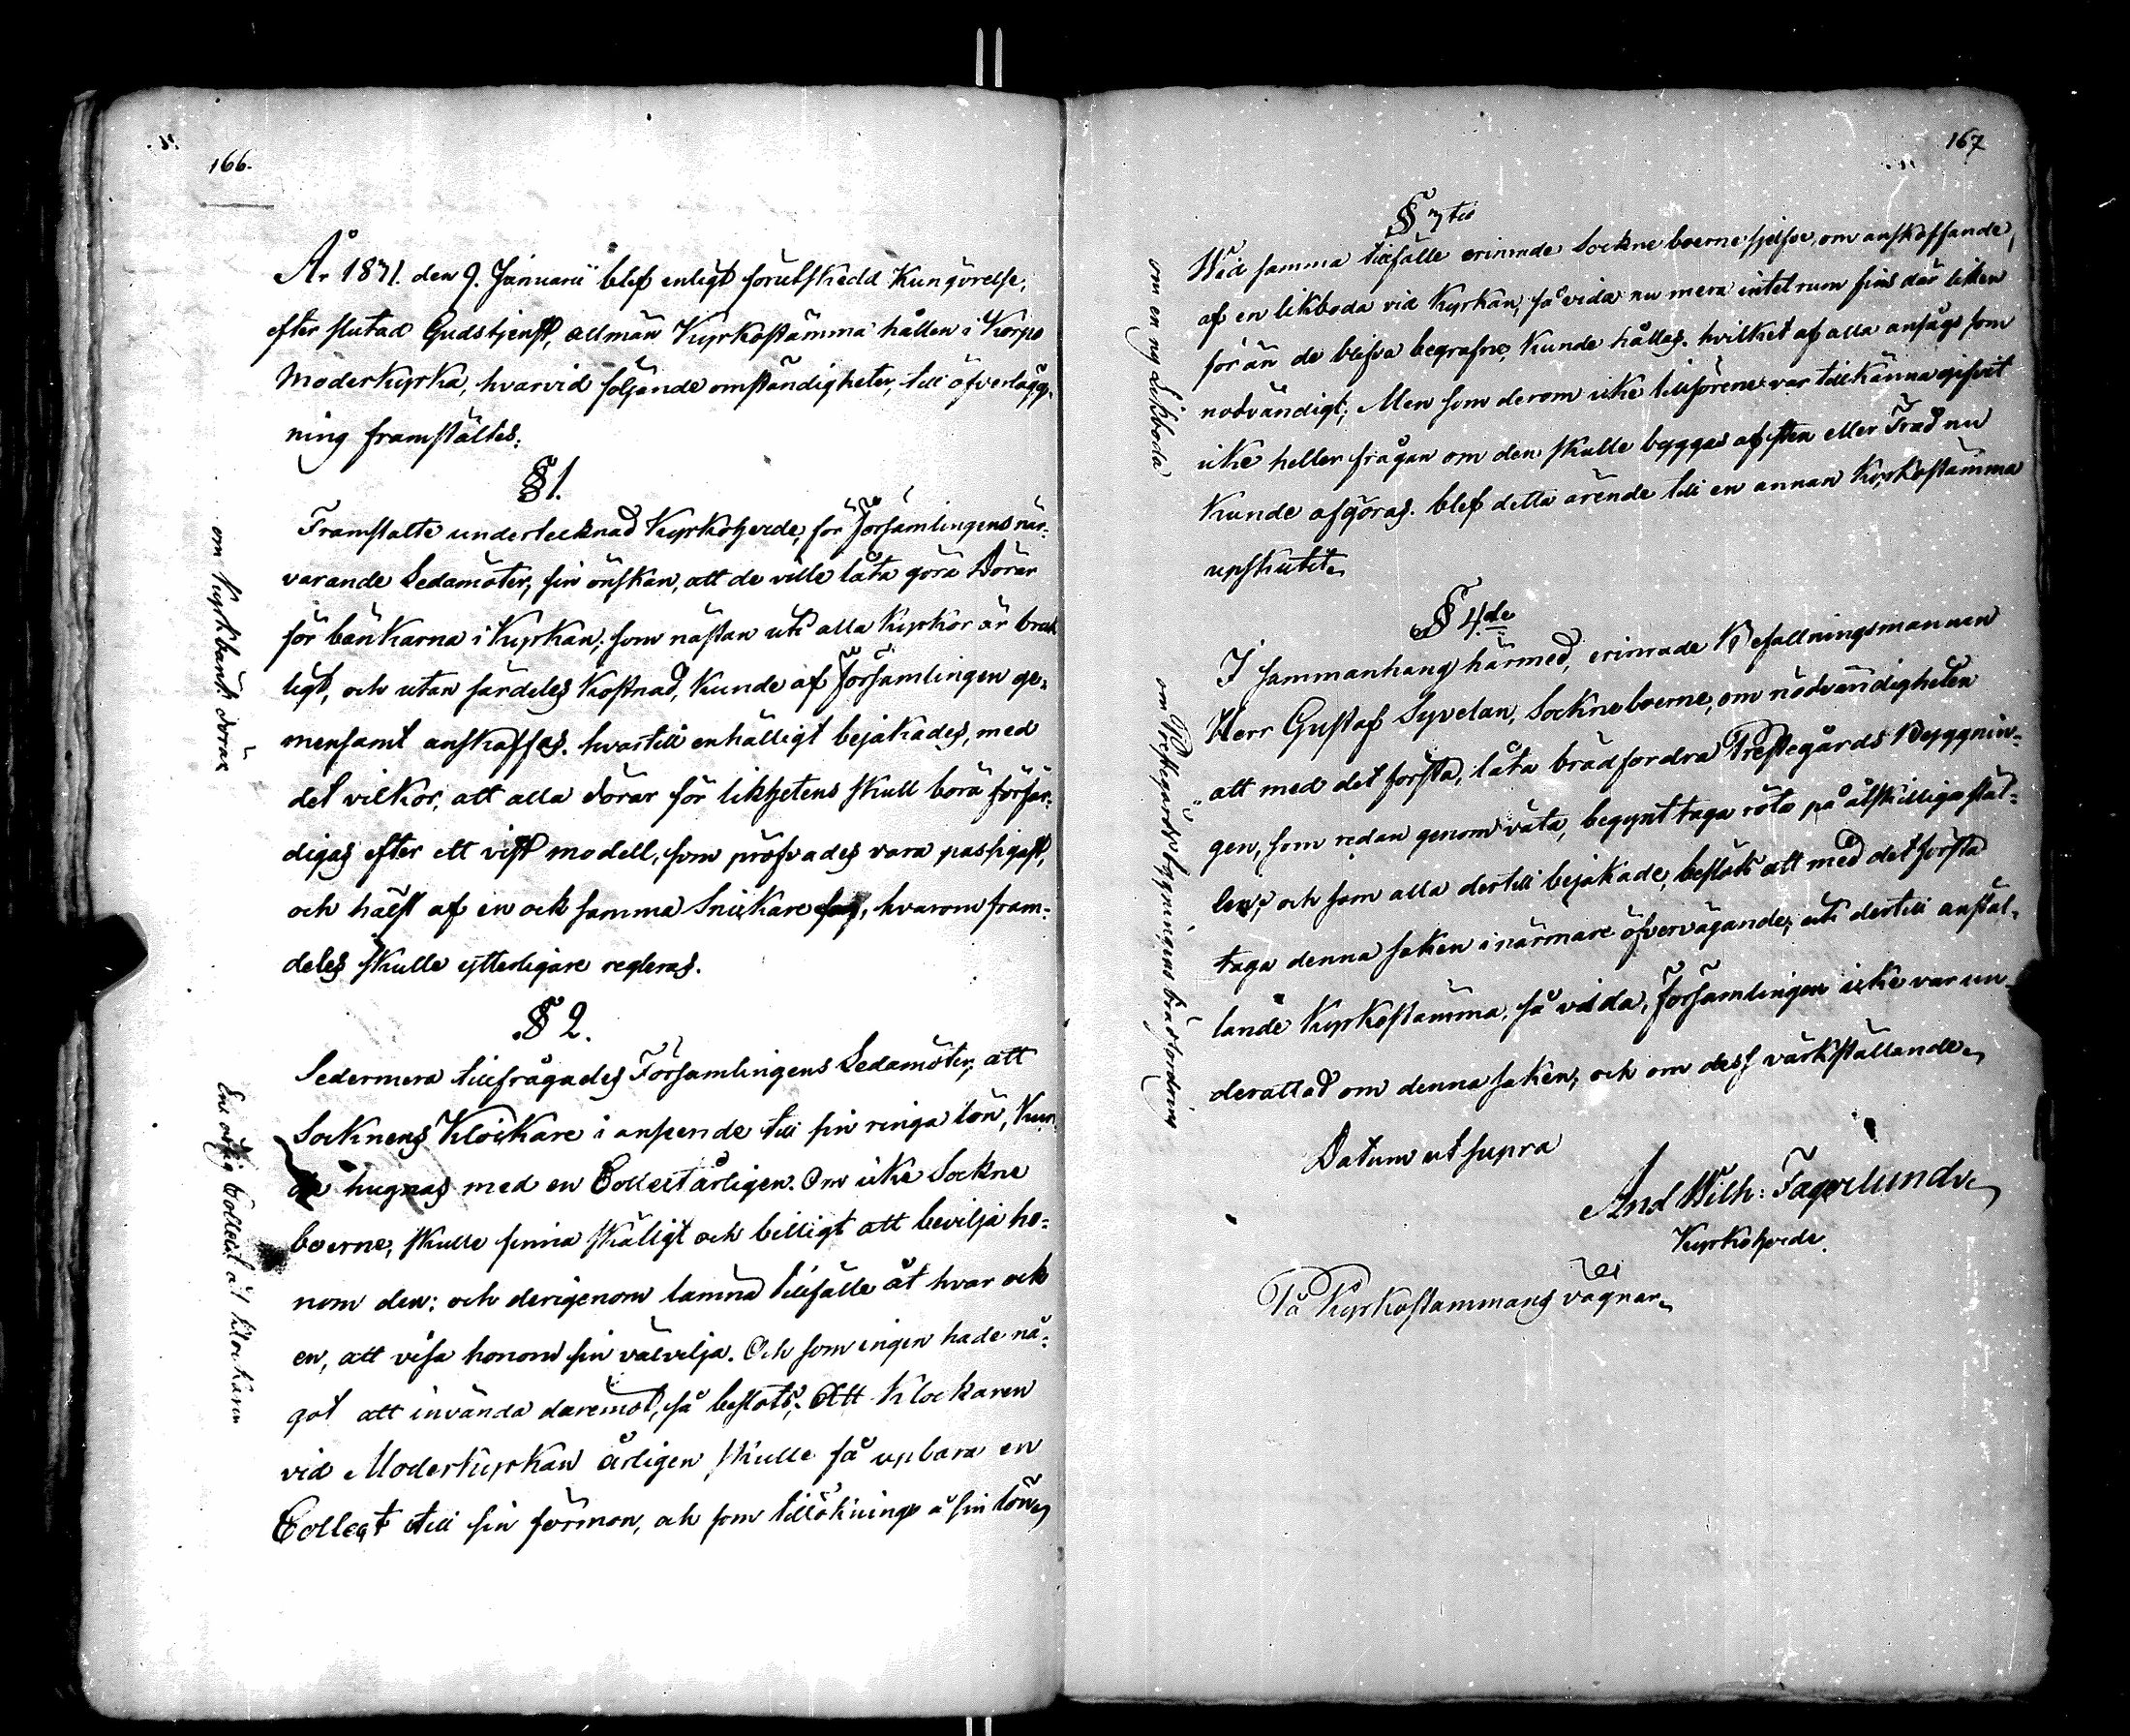 166.
År 1831. den 9. Januarii blef enligt förutskedd Kungörelse,
efter slutad Gudstjenst, allmän Kyrkostämma hållen i Korpo
Moderkyrka, hvarvid följande omständigheter, till öfverlägg-
ning framstältes:
§ 1.
om Kyrkbänk. dörar
Framstälte undertecknad Kyrkoherde, för Församlingens när-
varande Ledamöter, sin önskan, att de ville låta göra Dörar
för bänkarna i Kyrkan, som nästan uti alla Kyrkor är bruk
ligt, och utan särdeles Kostnad, Kunde af Församlingen ge-
mensamt anskaffas. hvartill enhälligt bejakades, med
det vilkor, att alla dörar för likhetens skull böra förfär-
digas efter ett visst modell, som pröfvades vara passigast,
och hälst af en ock samma Snickare, hvarom fram-
deles skulle ytterligare regleras.
§ 2.
En årlig Collect åt klockaren
Sedermera tillfrågades Församlingens Ledamöter, att
Socknens Klockare i anseende till sin ringa lön, Kun-
de hugnas med en Collect årligen. Om icke Sockne
boerne, skulle finna skäligt och billigt att bevilja ho-
nom den: och derigenom lämna tillfälle åt hvar och
en, att visa honom sin välvilja. Och som ingen hade nå-
got att invända däremot, så beslöts: Att Klockaren
vid Moderkyrkan årligen skulle få upbära en
Collect till sin förmon, och som tillökning å sin lön.
167
§ 3tio
om en ny Likboda
Wid samma tillfälle erinrade Sockneboerne sjelfve, om anskaffande,
af en likboda vid Kyrkan, så vida nu mera intet rum fins där liken
för än de blifva begrafne, Kunde hållas. hvilket af alla ansågs som
nödvändigt; Men som derom icke tillförene var tillkänna gifvit
icke heller frågan om den skulle byggas af sten eller Träd nu
Kunde afgöras. blef detta ärende till en annan Kyrkostämma
upskutit.
§ 4de
om Prestegårdsbyggningens brädfordring
I sammanhang härmed, erinrade Befallningsmannen
Herr Gustaf Syvelan, Sockneboerne, om nödvändigheten
att med det första, låta brädfordra Prestegårds Byggnin-
gen, som redan genom väta, begynt taga röta på åtskilliga stäl-
len; och som alla dertill bejakade, beslöts att med det första
taga denna saken i närmare öfvervägande, uti dertill anstäl-
lande Kyrkostämma, så vida, Församlingen icke var un-
derättad om denna saken, och om dess värkställande.
Datum ut supra
And Wilh: Fagerlund.
Kyrkoherde.
På Kyrkostämmans vägnar.